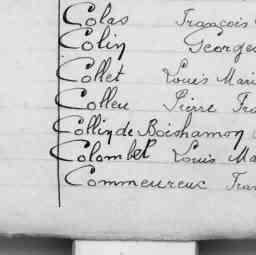 Colas François
Colin George
Collet Louis Mari
Colleu Pierre Fra
Collin de Boishamon
Colombel Louis Ma
Commeureuc Fran